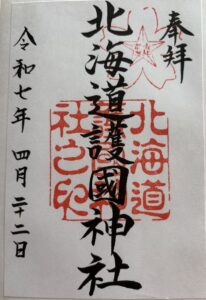 奉拝
北海道護國神社
北海道護國神社之印
令和七年 四月二十二日